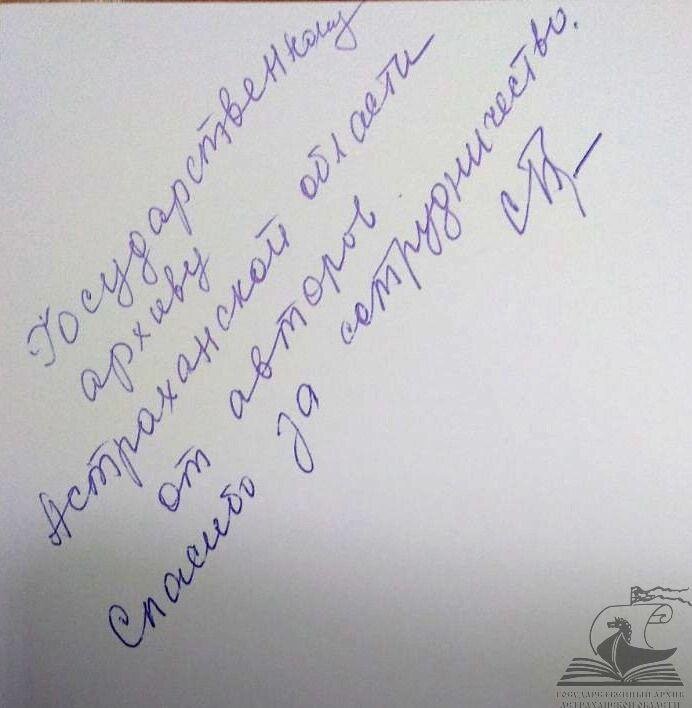 Государственному
архиву
Астраханской области
от авторов
Спасибо за сотрудничество.
ГОСУДАРСТВЕННЫЙ АРХИВ
АСТРАХАНСКОЙ ОБЛАСТИ